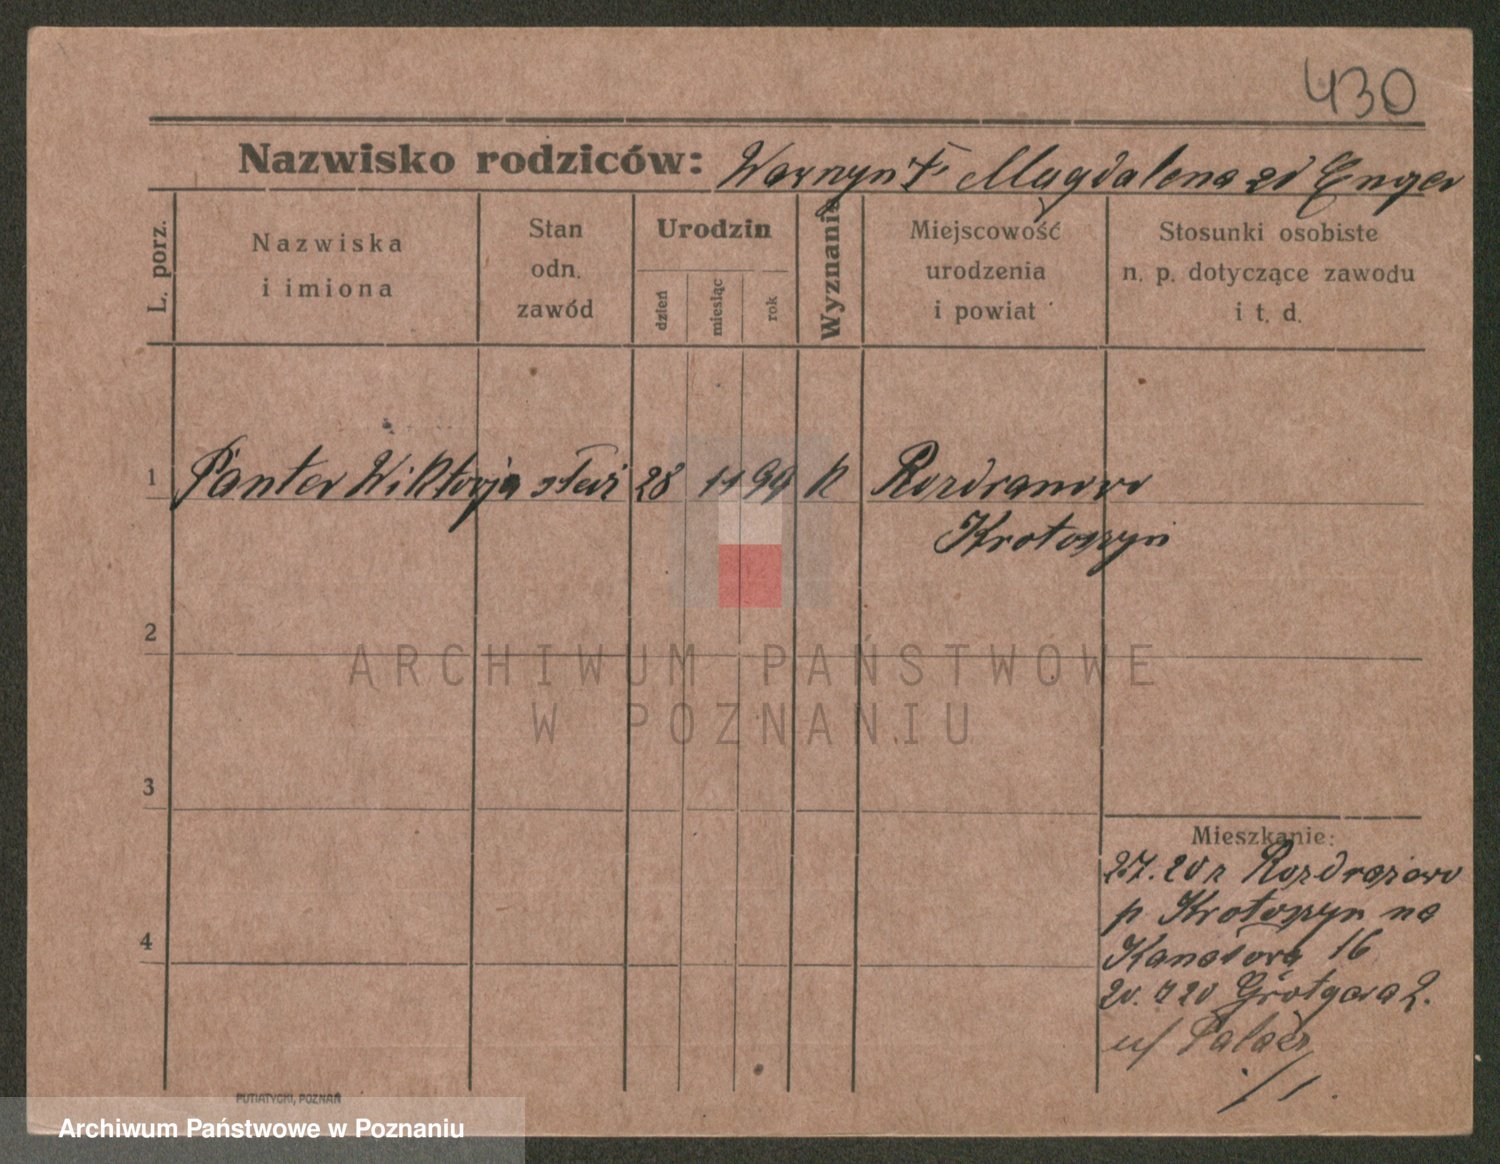 430
Nazwisko rodziców: Magdalena zd
L. porz.
Nazwiska
i imiona
Stan
odn.
zawód
Urodzin
dzień
miesiąc
rok
Wyznanie
Miejscowość
urodzenia
i powiat
Stosunki osobiste
n. p. dotyczące zawodu
i t. d.
1 Panter Wiktorja 28 11 99 k
Krotoszyn
2
ARCHIWUM PAŃSTWOWE
W POZNANIU
3
4
Mieszkanie:
Rozdrażewo
p Krotoszyn na
16
20. Grotgera 2.
u/
./.
PUTIATYCKI, POZNAŃ
Archiwum Państwowe w Poznaniu